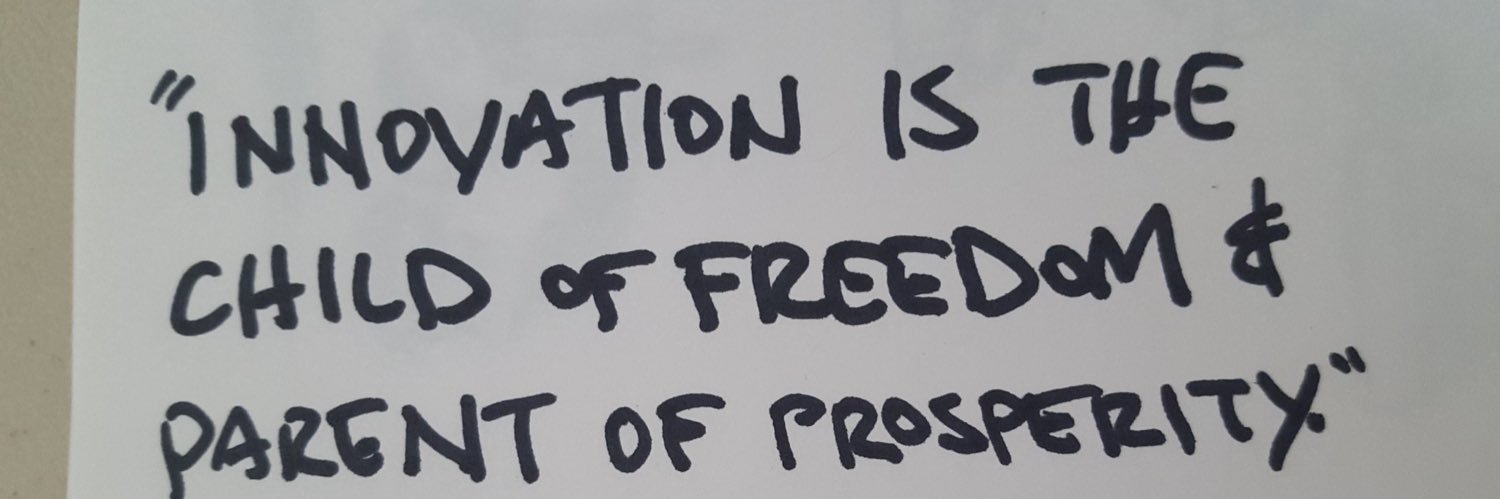 "INNOVATION IS THE
CHILD OF FREEDOM &
PARENT OF PROSPERITY."